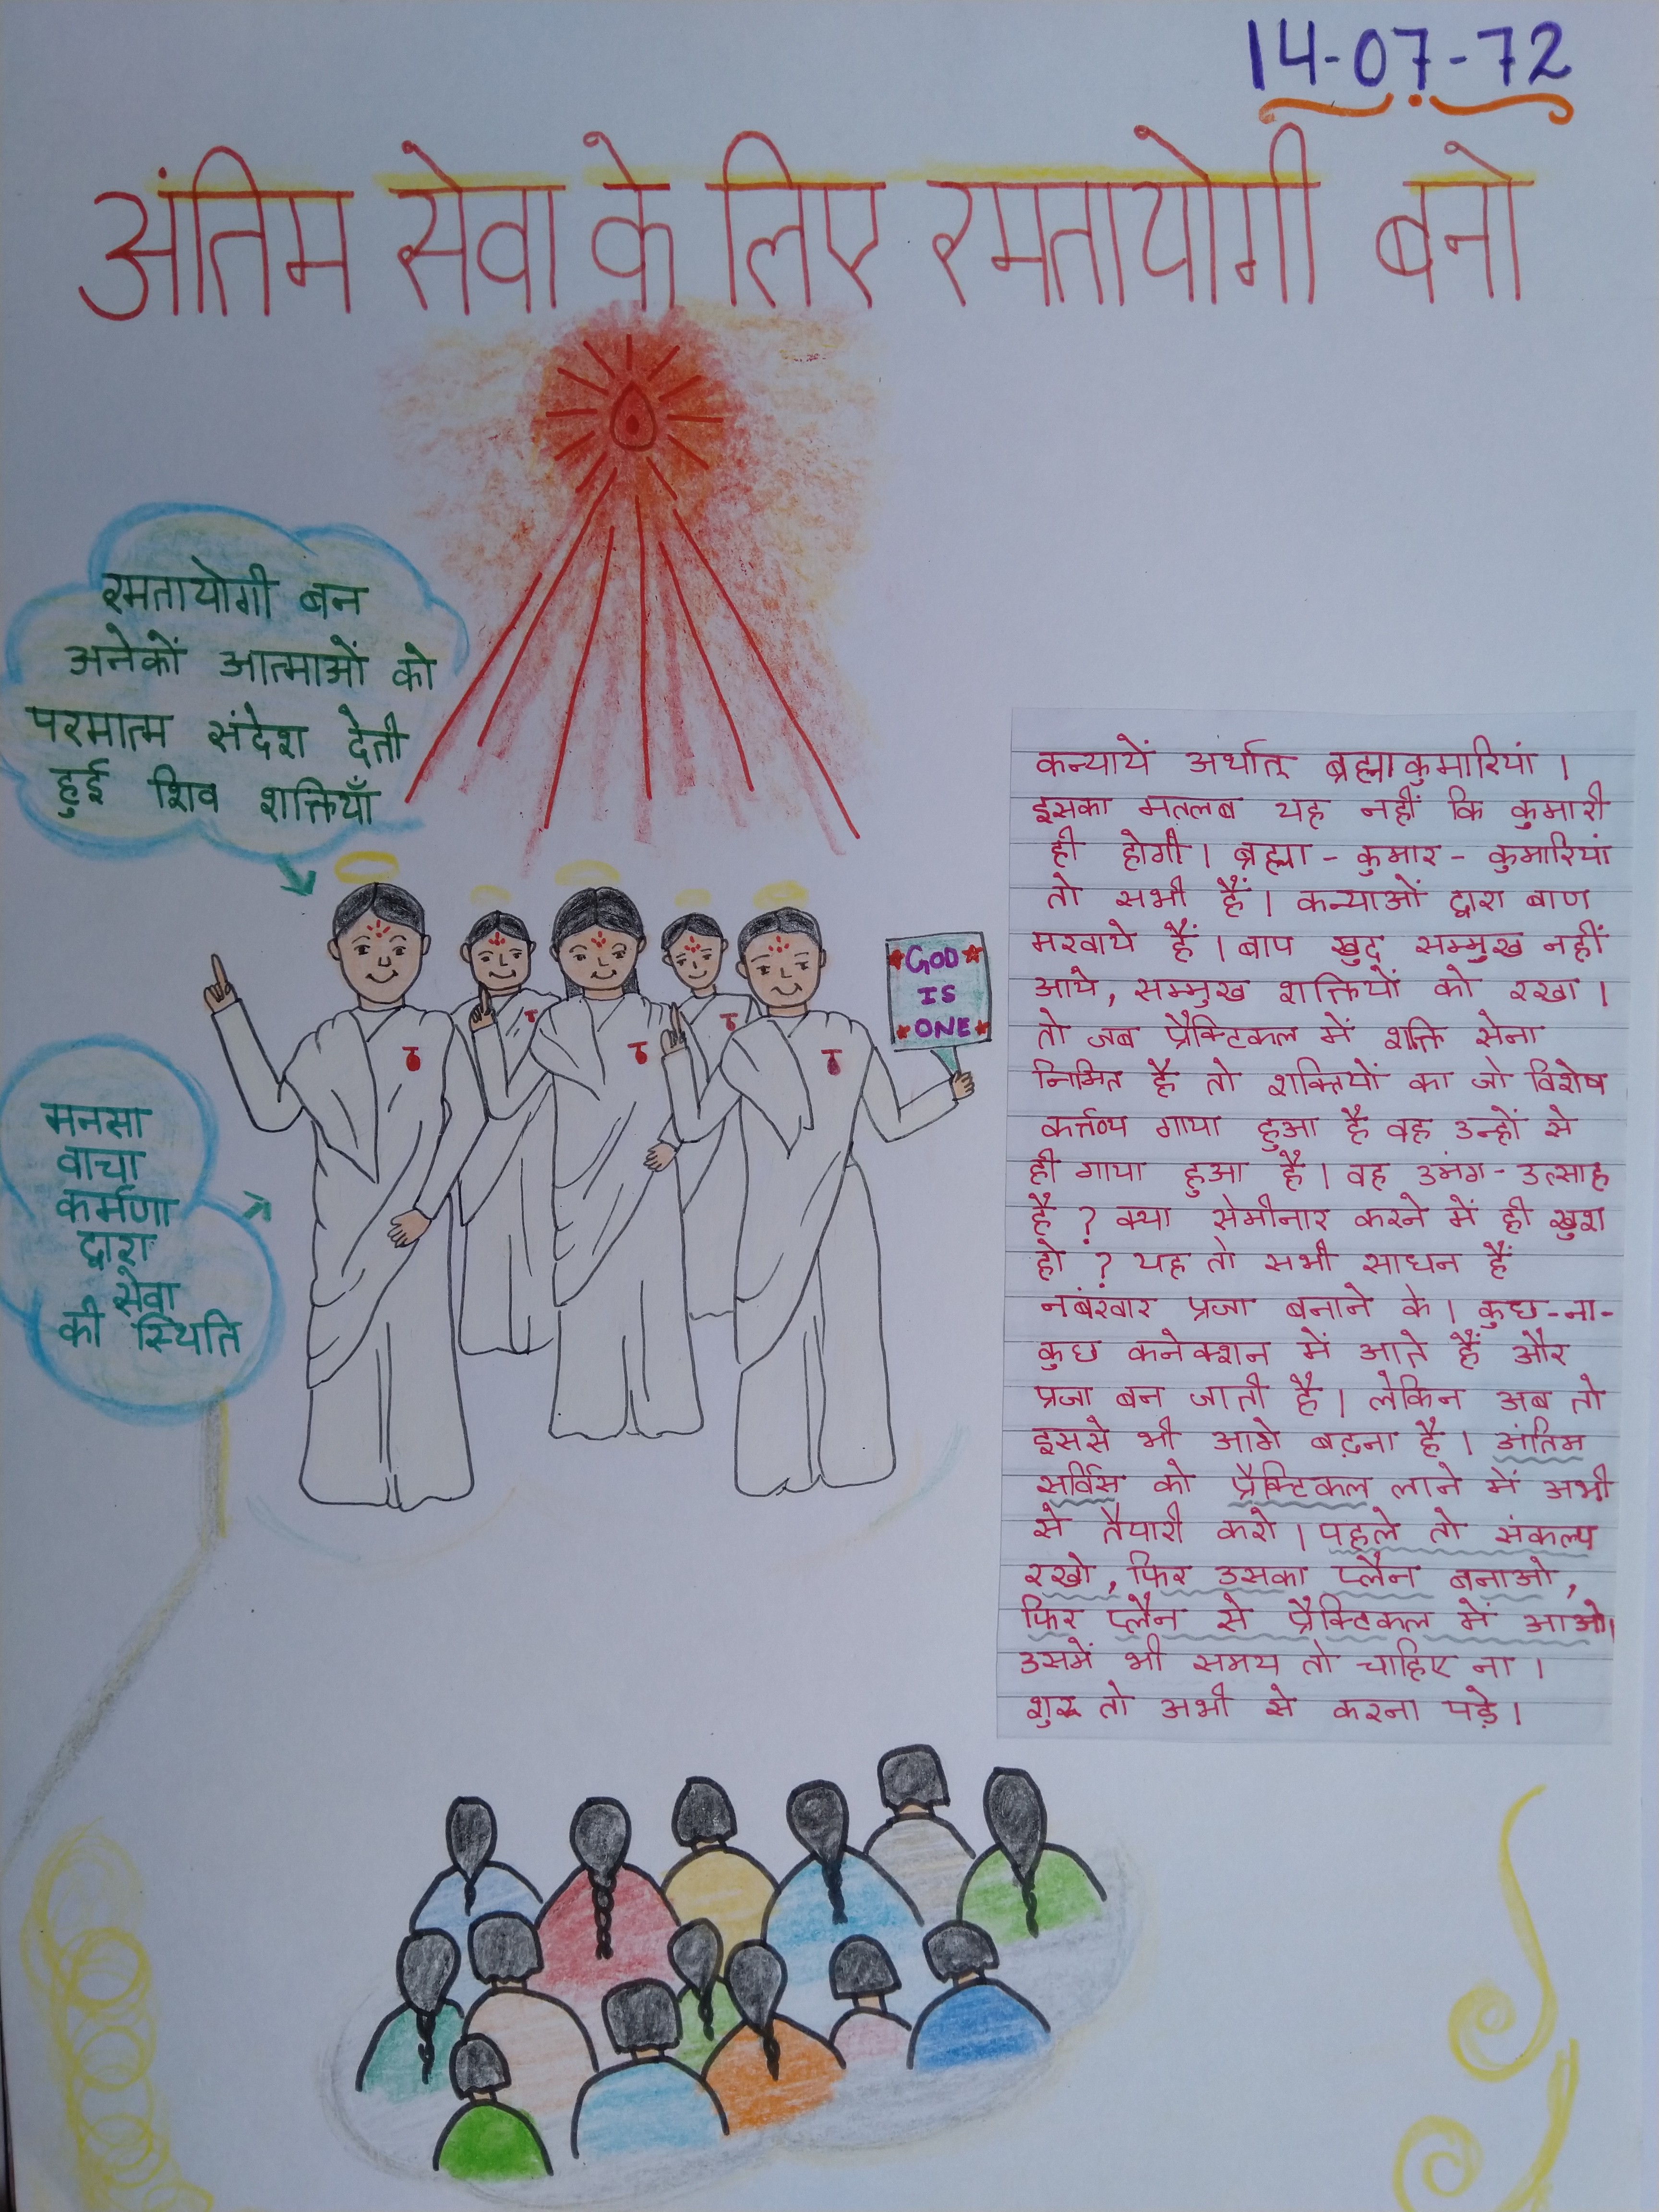 14-07-72
अंतिम सेवा के लिए रमतायोगी बनो
रमतायोगी बन
अनेकों आत्माओं को
परमात्म संदेश देती
हुई शिव शक्तियाँ
GOD
IS
ONE
मनसा
वाचा
कर्मणा
द्वारा
सेवा
की स्थिति
कन्यायें अर्थात् ब्रह्माकुमारियां ।
इसका मतलब यह नहीं कि कुमारी
ही होगी । ब्रह्मा - कुमार - कुमारियां
तो सभी हैं । कन्याओं द्वारा बाण
मरवाये हैं । बाप खुद सम्मुख नहीं
आये, सम्मुख शक्तियों को रखा ।
तो जब प्रैक्टिकल में शक्ति सेना
निमित है तो शक्तियों का जो विशेष
कर्त्तव्य गाया हुआ है वह उन्हों से
ही गाया हुआ है । वह उमंग - उत्साह
है ? क्या सेमीनार करने में ही खुश
हो ? यह तो सभी साधन हैं
नबंरवार प्रजा बनाने के । कुछ-ना-
कुछ कनेक्शन में आते हैं और
प्रजा बन जाती है । लेकिन अब तो
इससे भी आगे बढ़ना है । अंतिम
सर्विस को प्रैक्टिकल लाने में अभी
से तैयारी करो । पहले तो संकल्प
रखो, फिर उसका प्लैन बनाओ,
फिर प्लैन से प्रैक्टिकल में आओ।
उसमें भी समय तो चाहिए ना ।
शुरू तो अभी से करना पड़े ।